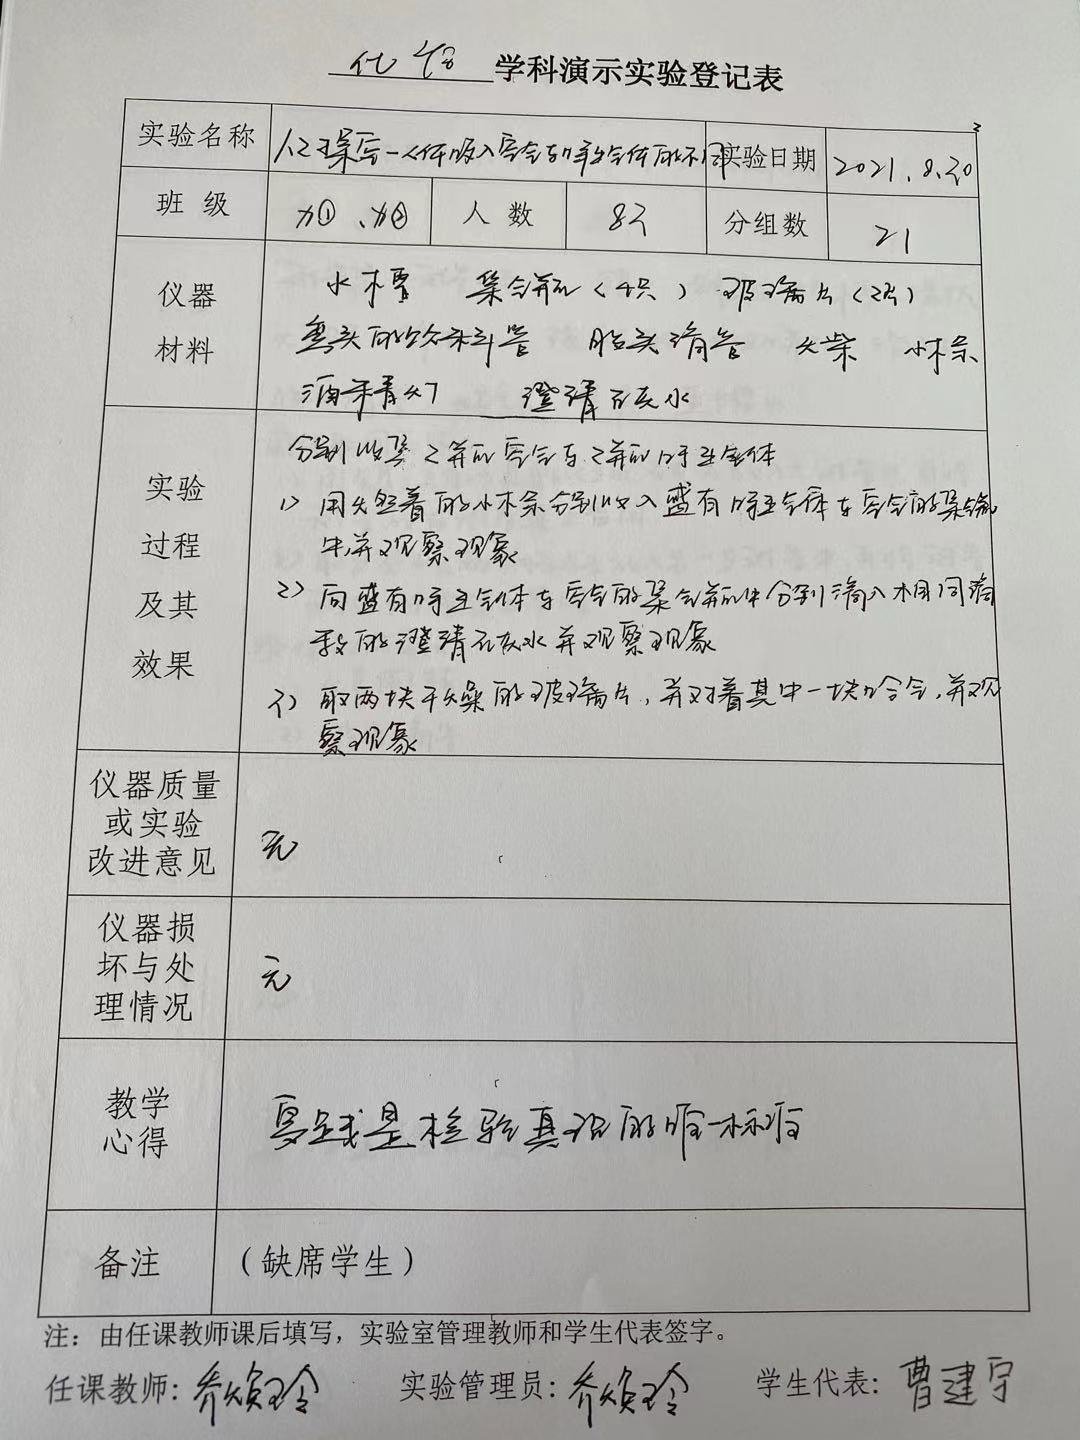 化学 学科演示实验登记表
实验名称 探究人体吸入空气与呼出气体的不同 实验日期 2021.8.30
班级 九①、九② 人数 83 分组数 21
仪器材料 水槽 集气瓶(4只) 玻璃片(2片)
弯头的饮料管 胶头滴管 火柴 小木条
酒精灯 澄清石灰水
实验过程及其效果 分别收集2瓶空气与2瓶呼出气体
1) 用燃着的小木条分别伸入盛有呼出气体与空气的集气瓶
中,并观察现象
2) 向盛有呼出气体与空气的集气瓶中分别滴入相同滴
数的澄清石灰水并观察现象
3) 取两块干燥的玻璃片,并对着其中一块哈气,并观
察现象
仪器质量或实验改进意见 无
仪器损坏与处理情况 无
教学心得 实践是检验真理的唯一标准
备注 (缺席学生)
注:由任课教师课后填写,实验室管理教师和学生代表签字。
任课教师: 实验管理员: 学生代表:曹建宇